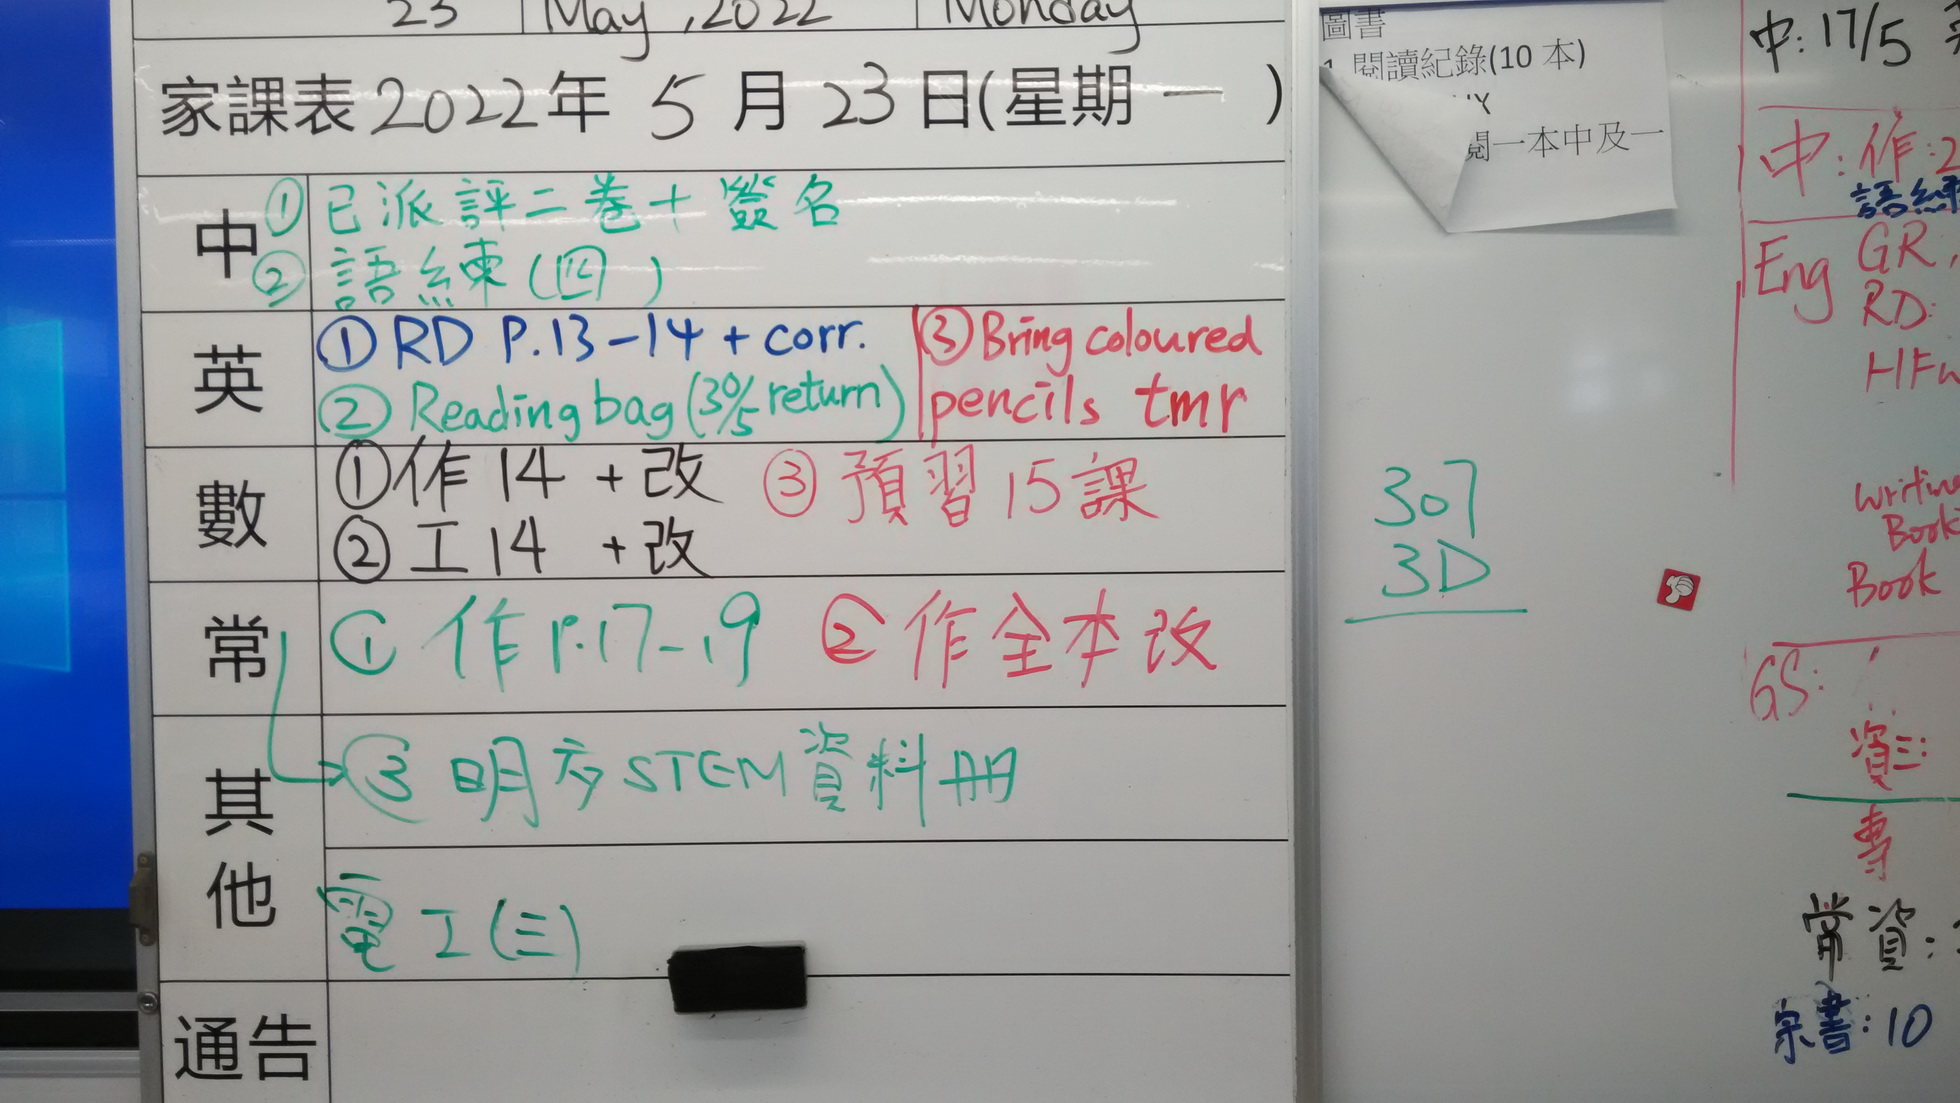 23 May, 2022 Monday
家課表2022年 5 月 23 日(星期 一 )
中
① 已派評二卷+簽名
② 語練(四)
英
① RD P.13-14 + corr.
② Reading bag (30/5 return)
③ Bring coloured
pencils tmr
數
① 作 14 + 改
② 工 14 + 改
③ 預習 15 課
常
① 作 P.17-19
② 作全本改
③ 明交 STEM 資料冊
其他
電工(三)
通告
圖書
1. 閱讀紀錄(10 本)
閱一本中及一
307
3D
中: 17/5
中: 作: 2
語練
Eng GR,
RD:
HFW
Writing
Book
Book
GS:
資三:
專
常資:
宗書: 10